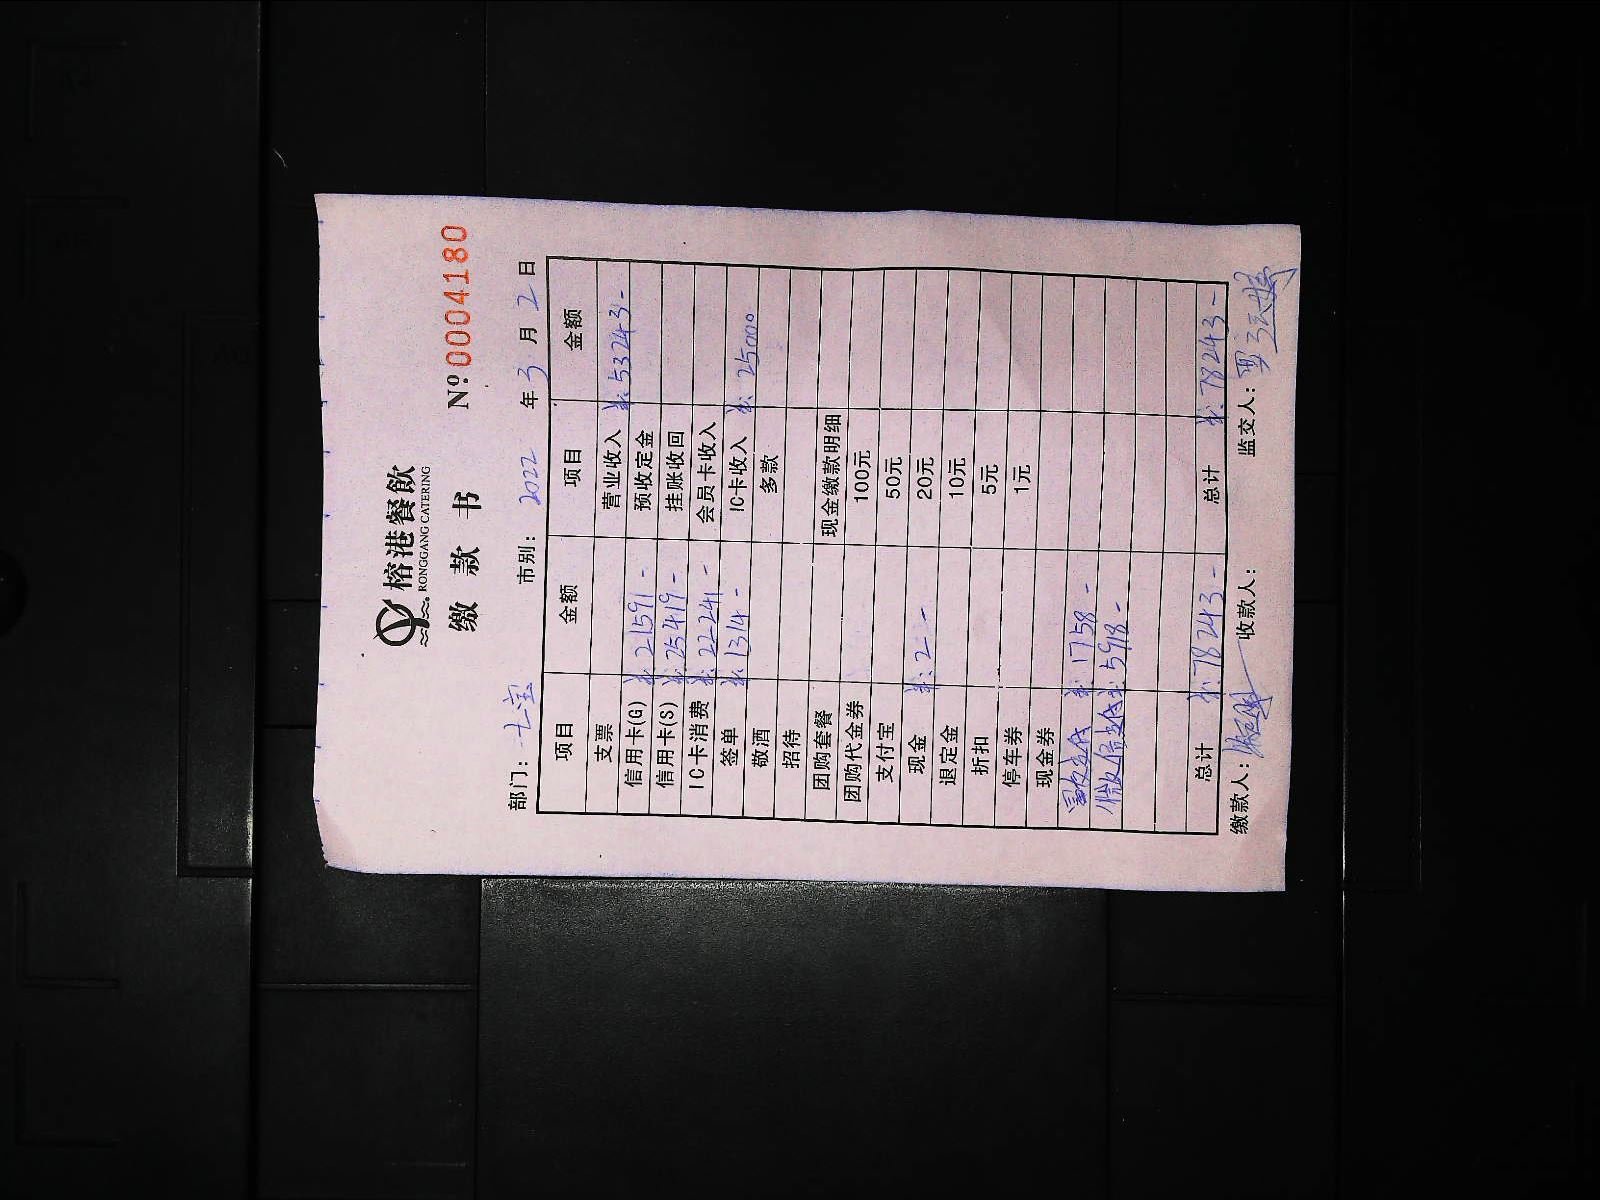 榕港餐飲
RONGGANG CATERING
缴 款 书 Nº:0004180
部门：七宝 市别： 2022 年 3 月 2 日
项目 金额 项目 金额
支票 营业收入 ¥:53243-
信用卡(G) ¥:21591- 预收定金
信用卡(S) ¥:25419- 挂账收回
IC卡消费 ¥:22241- 会员卡收入
签单 ¥:1314- IC卡收入 ¥:25000
敬酒 多款
招待
团购套餐 现金缴款明细
团购代金券 100元
支付宝 50元
现金 ¥:2.- 20元
退定金 10元
折扣 5元
停车券 1元
现金券
¥:1758-
微信支付 ¥:5918-
总计 ¥:78243- 总计 ¥:78243-
缴款人： 收款人： 监交人：